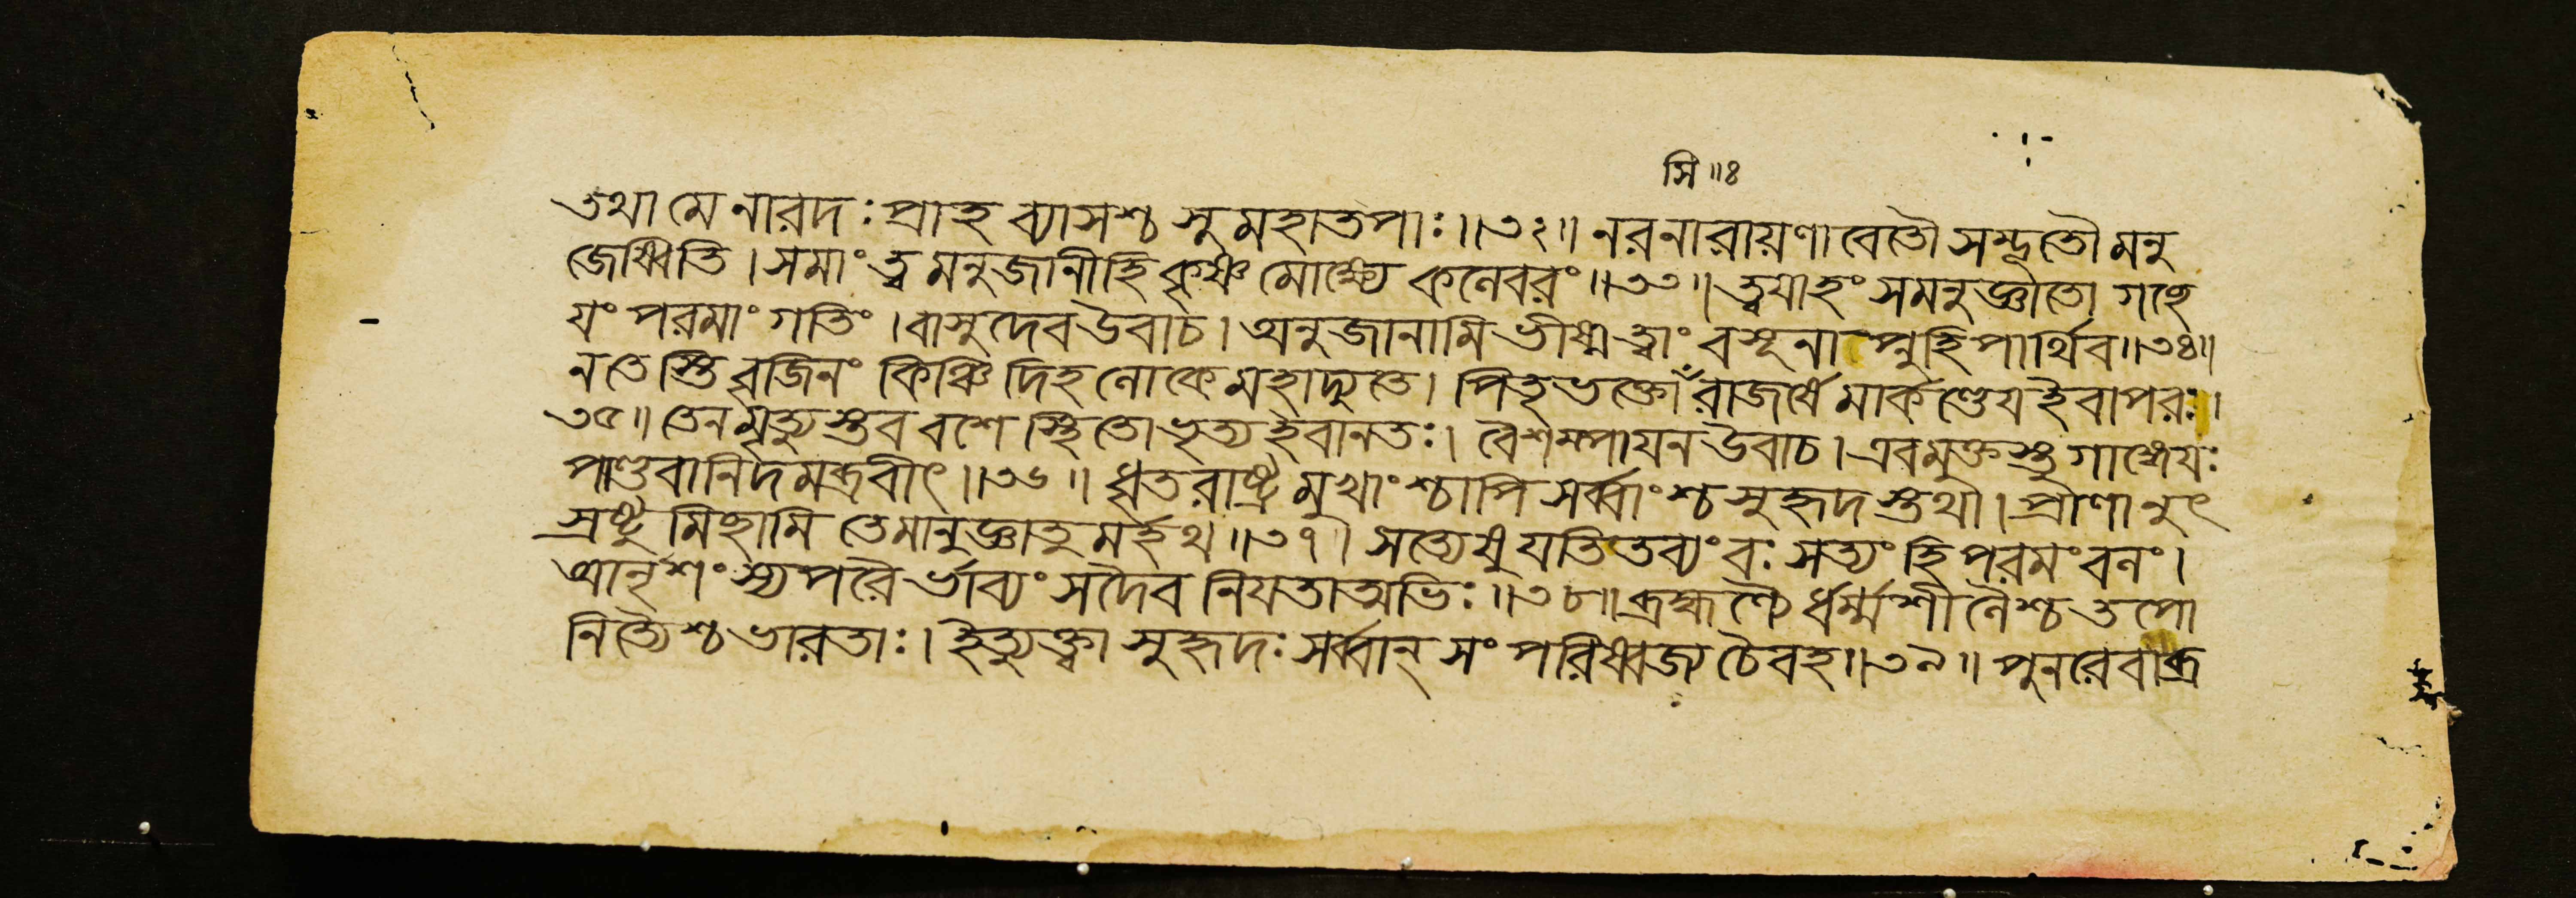 সি॥৪
তথা মে নারদঃ প্রাহ ব্যাসশ্চ সুমহাতপাঃ॥৩২॥ নরনারায়ণাবেতৌ সম্ভূতৌ মনু
জেষ্বিতি। সমাং ত্বমনুজানীহি কৃষ্ণ মোক্ষ্যে কলেবরং॥৩৩॥ ত্বয়াহং সমনুজ্ঞাতো গছে
যং পরমাং গতিং। বাসুদেব উবাচ। অনুজানামি ভীষ্ম ত্বাং বসূনাপ্নুহি পার্থিব॥৩৪॥
ন তেস্তি বৃজিনং কিঞ্চিদিহ লোকে মহাদ্যুতে। পিতৃভক্তোঁ রাজর্ষে মার্কণ্ডেয ইবাপরঃ।
৩৫॥ তেন মৃত্যুস্তব বশে স্থিতো ভৃত্য ইবানতঃ। বৈশম্পাযন উবাচ। এবমুক্তস্তু গাঙ্গেযঃ
পাণ্ডবানিদমব্রবীৎ॥৩৬॥ ধৃতরাষ্ট্রমুখাংশ্চাপি সর্ব্বাংশ্চ সুহৃদস্তথা। প্রাণানুৎ
স্রষ্টুমিছামি তেমানুজ্ঞাতুমর্হথ॥৩৭। সত্যেষু যতিতব্যং বঃ সত্যং হি পরমং বলং।
আনৃশংস্যপরৈর্ভাব্যং সদৈব নিযতাত্মভিঃ॥৩৮॥ ব্রহ্মণ্যৈর্ধর্ম্মশীলৈশ্চ তপো
নিত্যৈশ্চ ভারতাঃ। ইত্যুক্ত্বা সুহৃদঃ সর্ব্বান্ সংপরিষ্বজ্য চৈবহ॥৩৯॥ পুনরেবাব্র